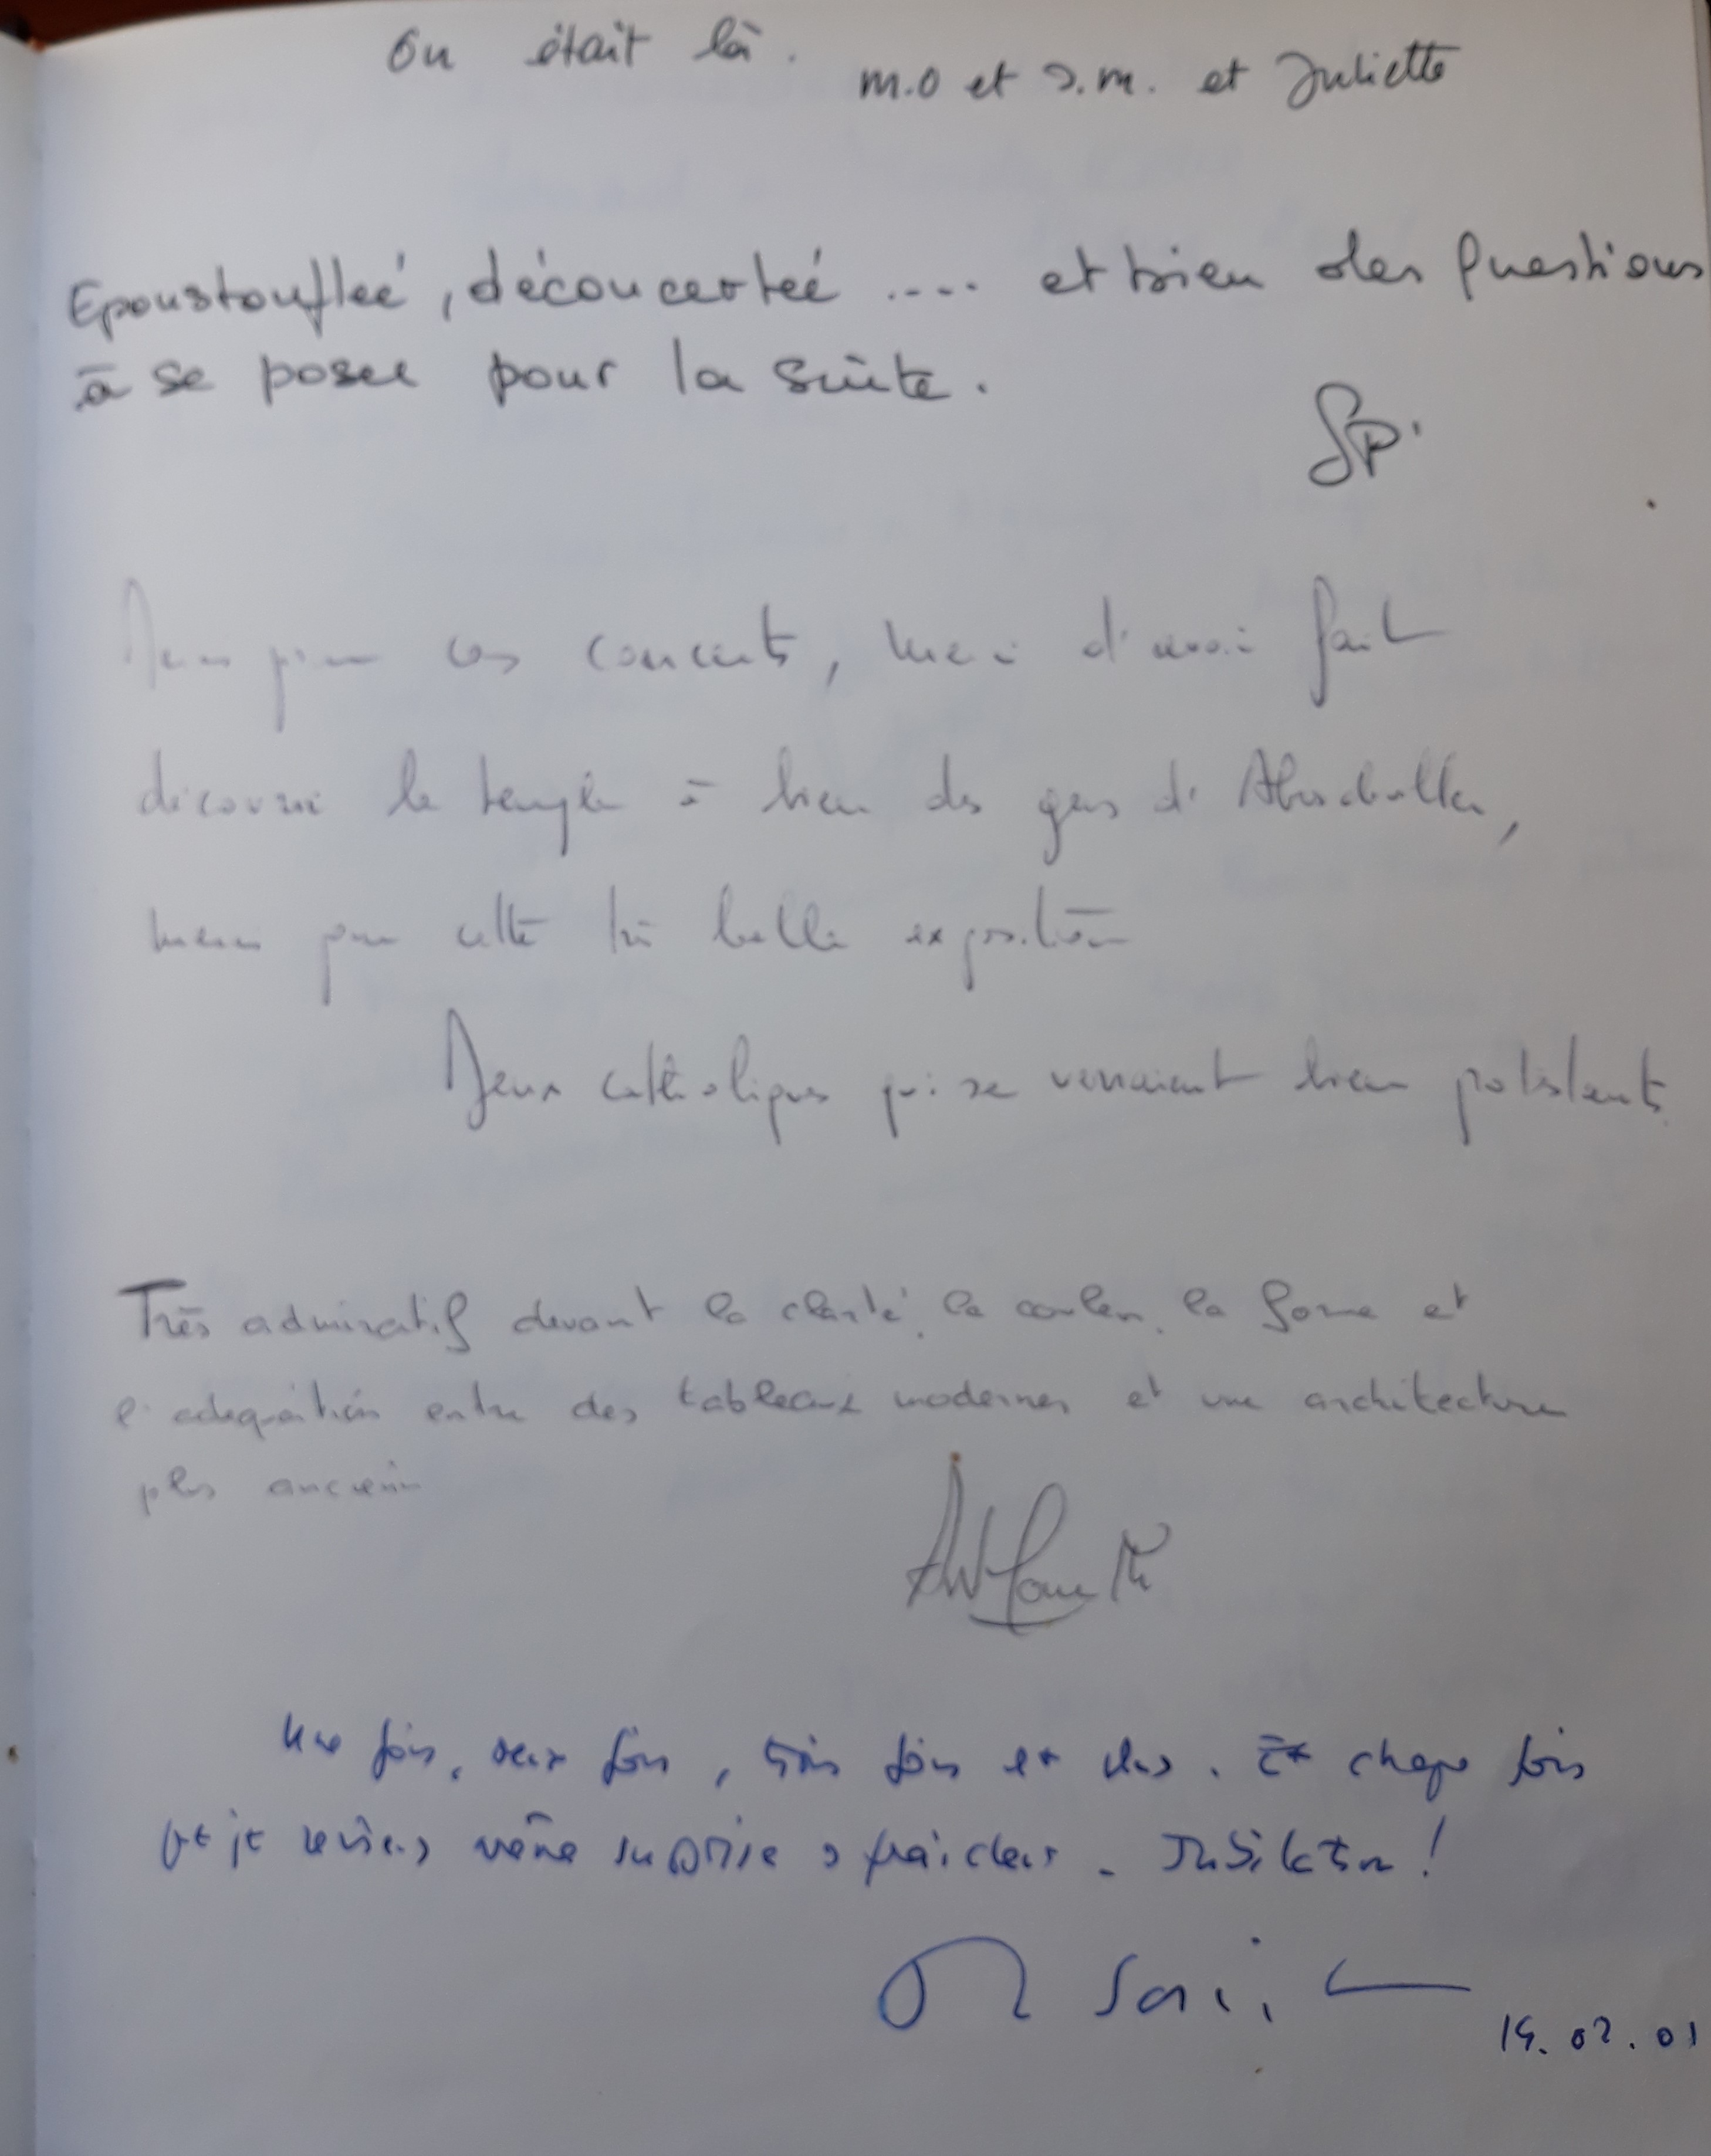 On était là.
m.o et J.M. et Juliette
Epoustouflée, déconcertée .... et bien des questions
à se poser pour la suite.
SP.
Merci pour ces concerts, merci d'avoir fait
découvrir le temple à bien des gens d'
merci pour cette très belle exposition
Deux catholiques qui se verraient bien protestants
Très admiratif devant la clarté, la couleur, la forme et
l'adéquation entre des tableaux modernes et une architecture
plus ancienne
Une fois, deux fois, trois fois et plus. Et chaque fois
que je reviens même surprise, fraîcheur. Jubilation !
02.01